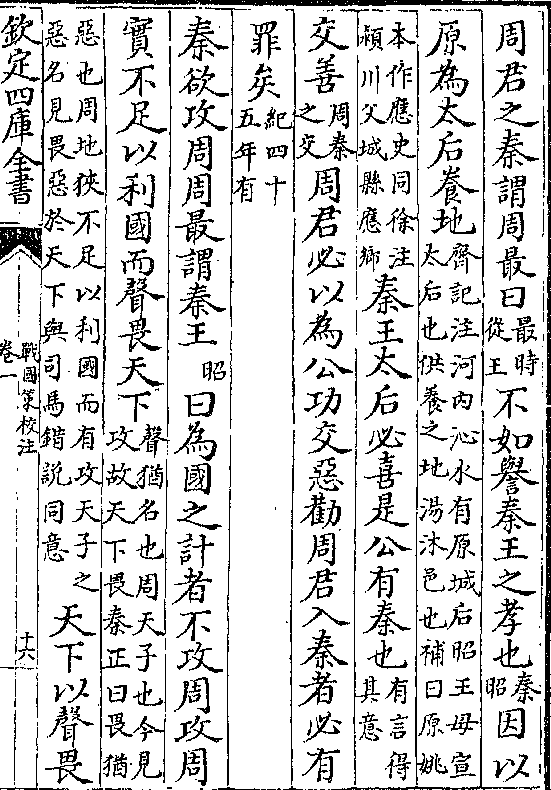 周君之秦謂周最曰最時從王不如譽秦王之孝也秦昭因以
原為太后養地齊記注河内沁水有原城后昭王母宣太后也供養之地湯沐邑也補曰原姚
本作應史同徐注潁川父城縣應鄉秦王太后必喜是公有秦也有言得其意
交善周秦之交周君必以為公功交惡勸周君入秦者必有
罪矣紀四十五年有
秦欲攻周周最謂秦王昭曰為國之計者不攻周攻周
實不足以利國而聲畏天下聲猶名也周天子也今見攻故天下畏秦正曰畏猶
惡也周地狹不足以利國而有攻天子之惡名見畏惡於天下與司馬錯説同意天下以聲畏
欽定四庫全書
戰國策校注
卷一
十六